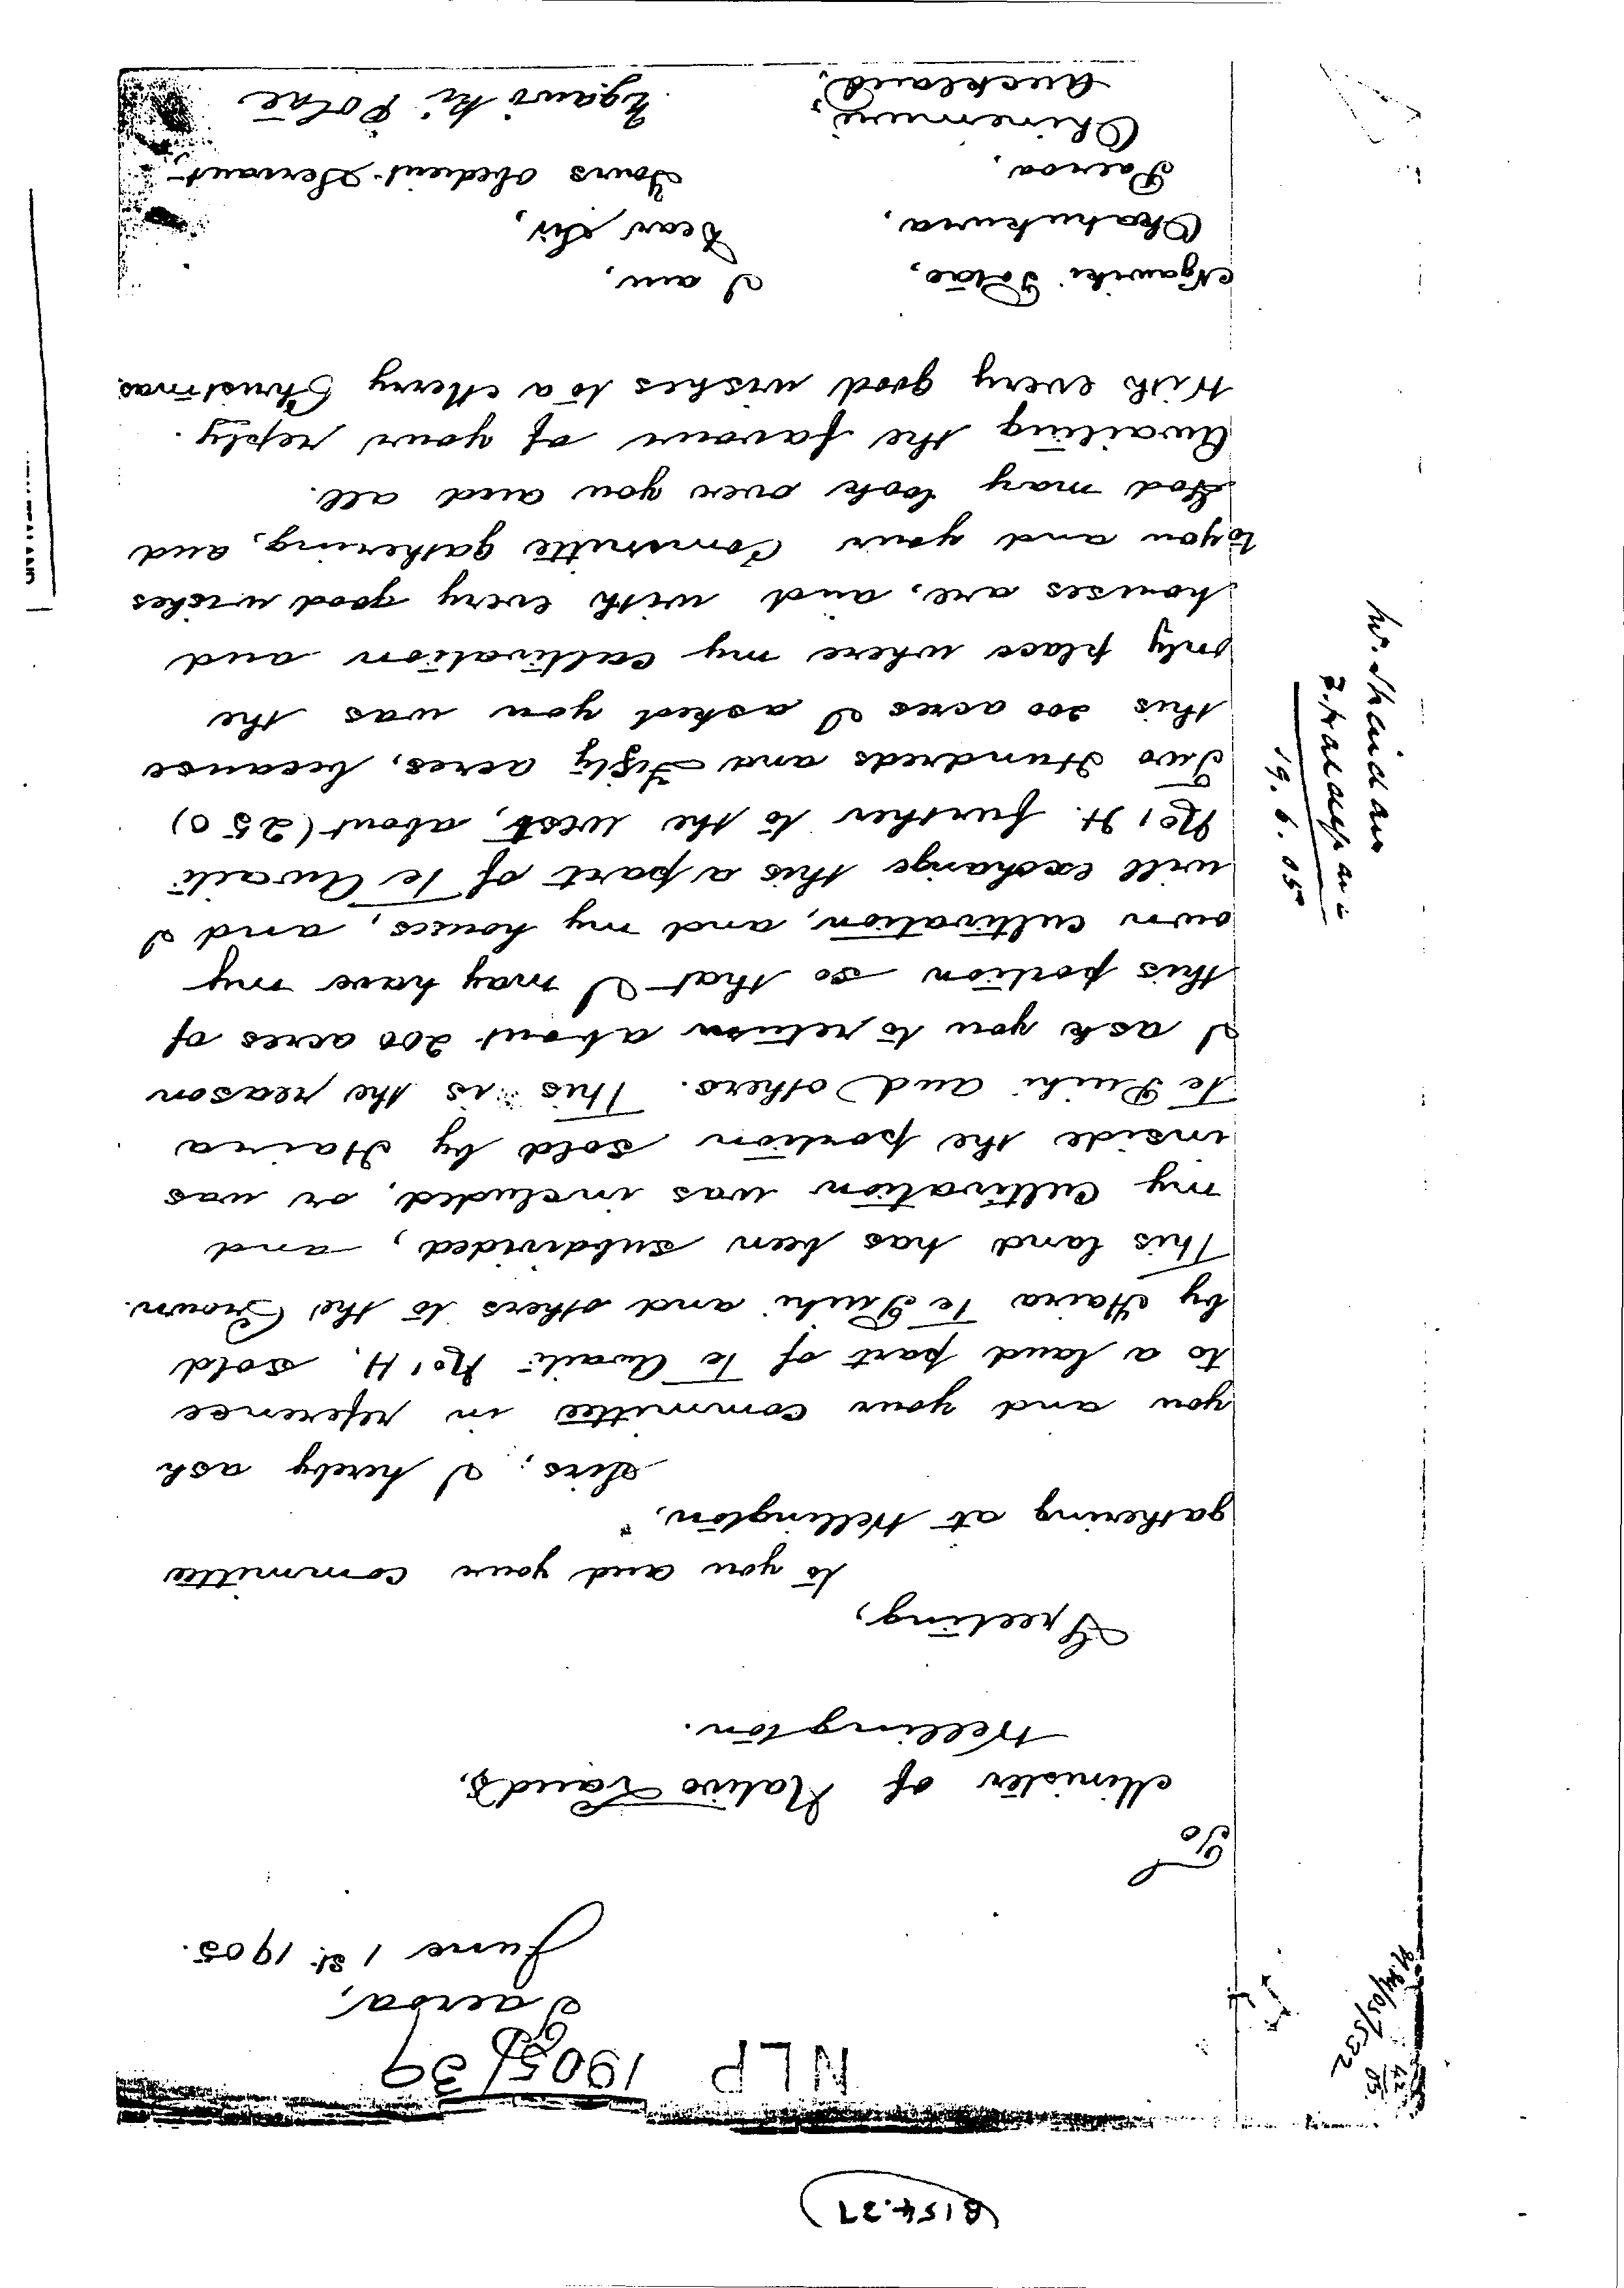 B154.37
NLP 1905/39
Paeroa,
June 1st 1905.
To
Minister of Native Lands,
Wellington.
Greeting,
to you and your committe
gathering at Wellington,
Sirs; I hereby ask
you and your committe in reference
to a land part of Te Awaiti No 1 H. sold
by Haira Te Puihi and others to the Crown.
This land has been subdivided, and
my cultivation was included, or was
inside the portion sold by Haira
Te Puihi and others. This is the reason
I ask you to return about 200 acres of
this portion so that I may have my
own cultivation, and my houses, and I
will exchange this a part of Te Awaiti
No 1 H. further to the west, about (250)
Two Hundreds and Fifty acres, because
this 200 acres I asked you was the
only place where my cultivation and
houses are, and with every good wishes
to you and your Committe gathering, and
God may look over you and all.
Awaiting the favour of your reply.
With every good wishes to a Merry Christmas
I am,
Dear Sir,
Yours obedient Servant
Ngawiki Potae
Ngawiki Potae,
Okahukura,
Paeroa,
Ohinemuri,
Auckland,
Mr. Sheridan
19.6.05